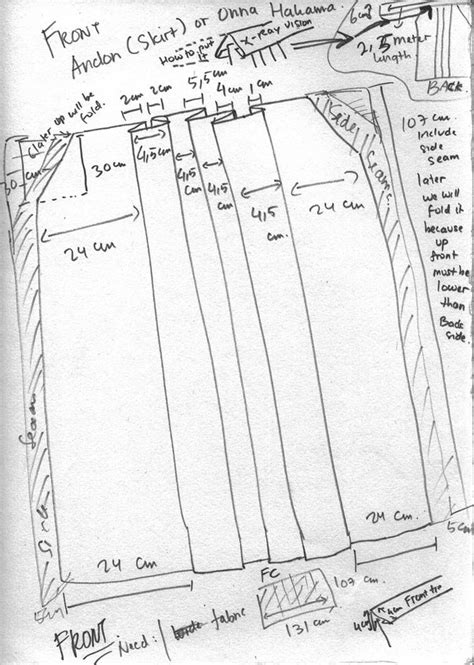 FRONT
Andon (Skirt) or Onna Hakama.
How to put it
X-ray vision
6cm
2,5 meter
length
BACK
later up will be
fold.
2cm 2cm
5,5cm
4cm
1cm
30 cm
30cm
4,5cm
4,5cm
4,5cm
4,5
cm
24 cm
24 cm
Side Seam
Side Seam
107 cm.
include
side
seam
later
we will
fold it
because
up
front
must be
lower
than
Back
side.
24 cm
24 cm.
5cm
5cm
FRONT
Need:
fabric
FC
109 cm.
131 cm
4cm
4cm
Front